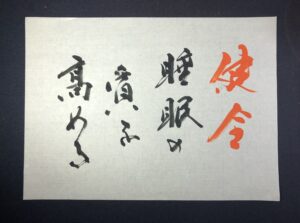 使令
睡眠の
質を
高める